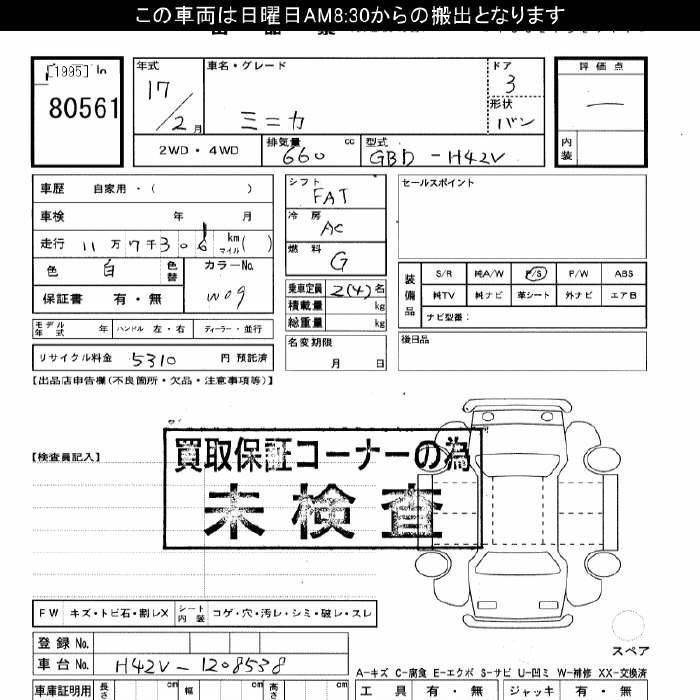 この車両は日曜日AM8:30からの搬出となります
[1995] In
80561
年式
17/2月
車名・グレード
ミニカ
ドア
3
形状
バン
評価点
―
内装
2WD・4WD
排気量
660
cc
型式
GBD-H42V
車歴 自家用・( )
車検 年 月
走行 11万7千306 km マイル ( )
色 白 色替
カラーNo.
W09
保証書 有・無
シフト
FAT
冷房
AC
燃料
G
乗車定員 2(4) 名
積載量 kg
総重量 kg
セールスポイント
装備品
S/R 純A/W P/S P/W ABS
純TV 純ナビ 革シート 外ナビ エアB
ナビ型番:
モデル年式 年 ハンドル 左・右 ディーラー・並行
名変期限
月 日
後日品
リサイクル料金 5310 円 預託済
【出品店申告欄(不良箇所・欠品・注意事項等)】
【検査員記入】
買取保証コーナーの為
未検査
FW キズ・トビ石・割レX シート内装 コゲ・穴・汚レ・シミ・破レ・スレ
登録No.
車台No. H42V-1208538
スペア
A-キズ C-腐食 E-エクボ S-サビ U-凹ミ W-補修 XX-交換済
車庫証明用 長さ cm 幅 cm 高さ cm
工具 有・無 ジャッキ 有・無